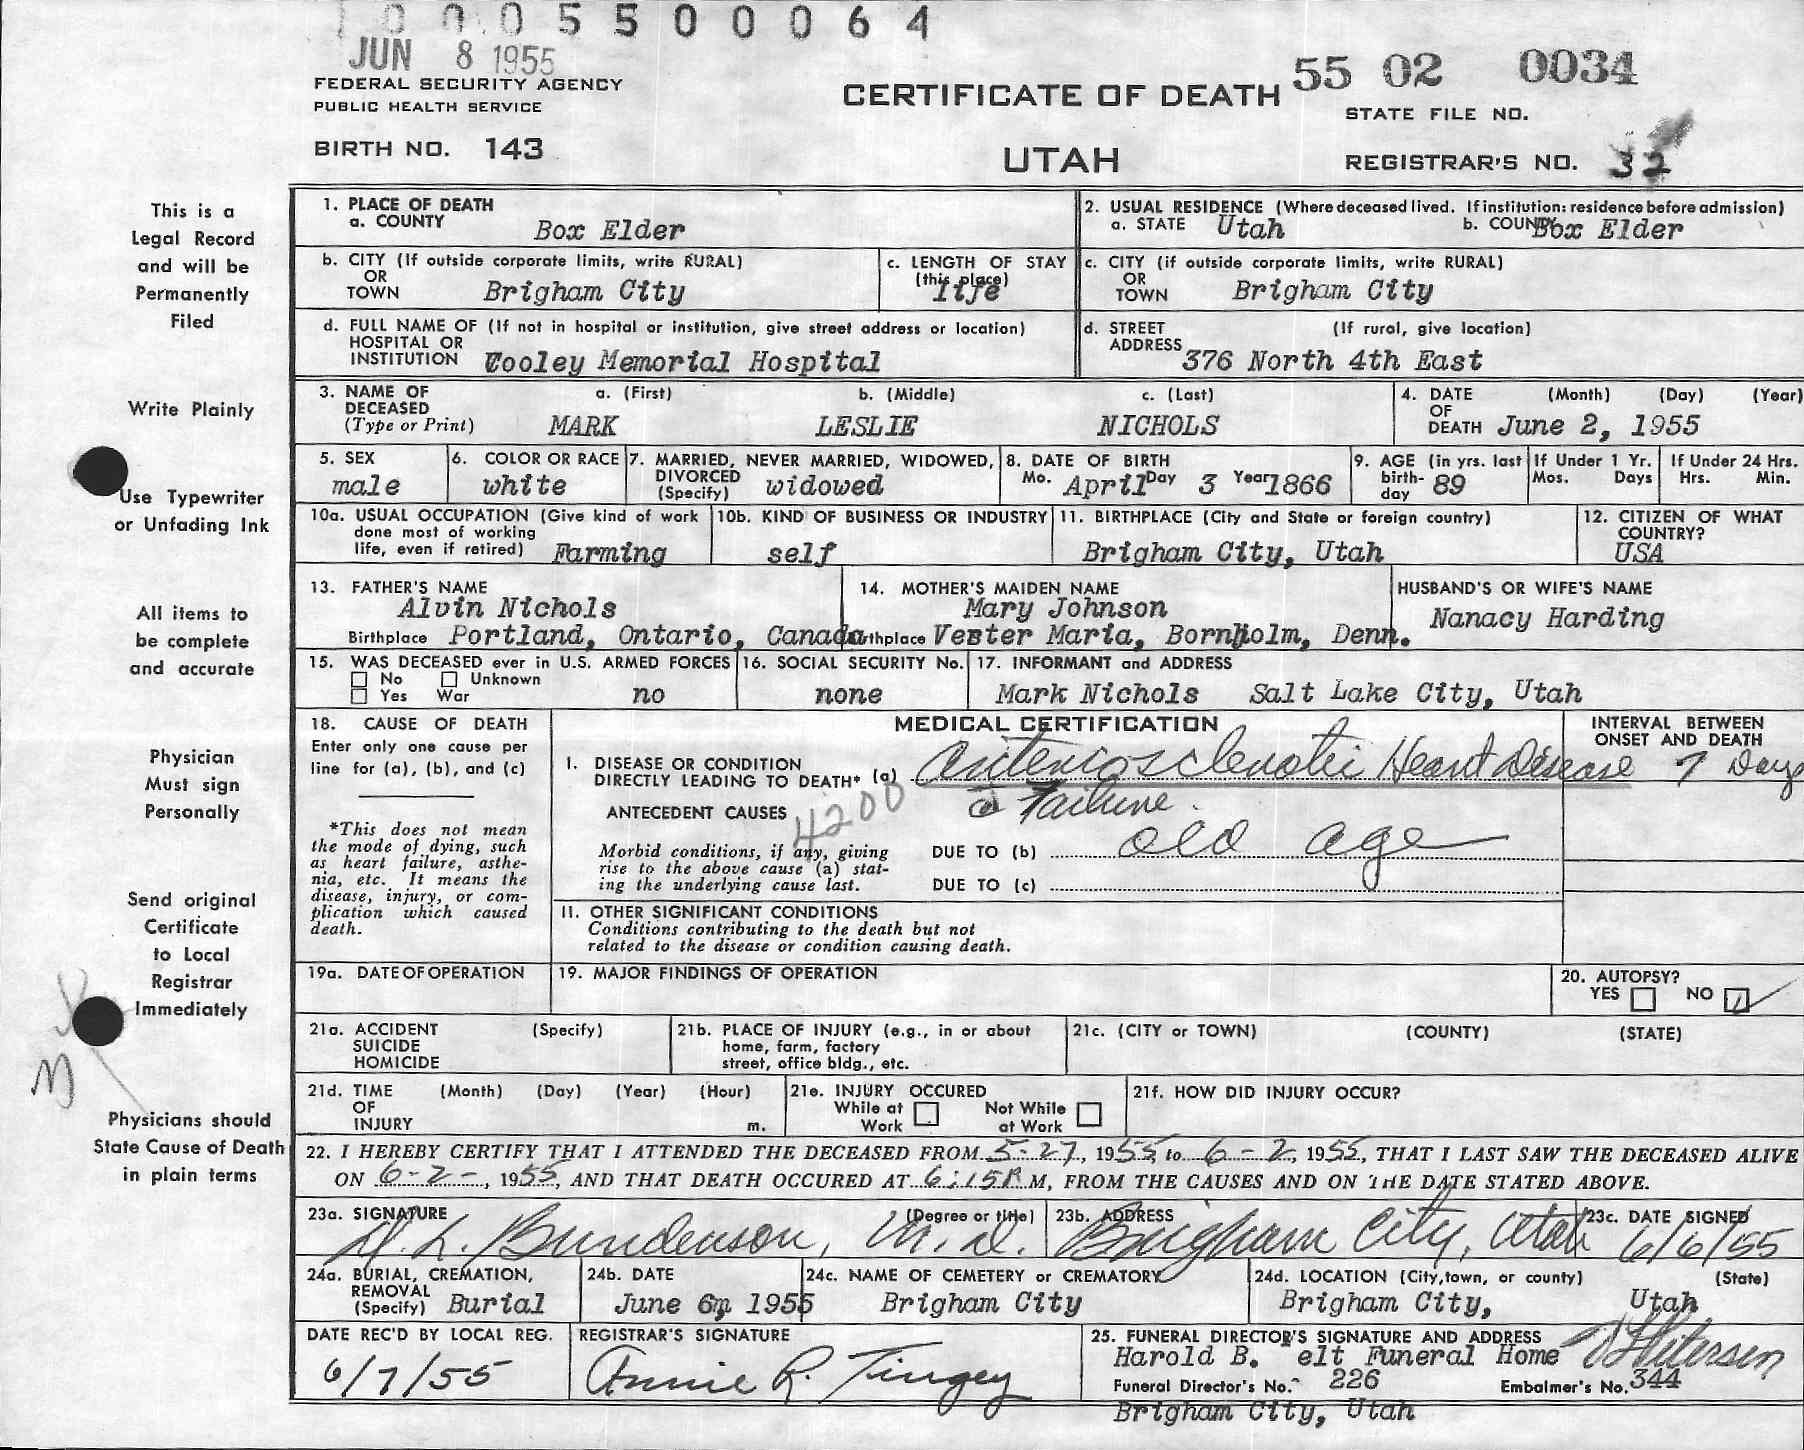 0 0 0 5 5 0 0 0 6 4
JUN 8 1955
FEDERAL SECURITY AGENCY
PUBLIC HEALTH SERVICE
BIRTH NO. 143
CERTIFICATE OF DEATH
UTAH
55 02 0034
STATE FILE NO.
REGISTRAR'S NO. 32
This is a
Legal Record
and will be
Permanently
Filed
Write Plainly
Use Typewriter
or Unfading Ink
All items to
be complete
and accurate
Physician
Must sign
Personally
Send original
Certificate
to Local
Registrar
Immediately
Physicians should
State Cause of Death
in plain terms
1. PLACE OF DEATH
a. COUNTY Box Elder
2. USUAL RESIDENCE (Where deceased lived. If institution: residence before admission)
a. STATE Utah b. COUNTY Box Elder
b. CITY (If outside corporate limits, write RURAL)
OR
TOWN Brigham City
c. LENGTH OF STAY
(this place)
life
c. CITY (if outside corporate limits, write RURAL)
OR
TOWN Brigham City
d. FULL NAME OF (If not in hospital or institution, give street address or location)
HOSPITAL OR
INSTITUTION Cooley Memorial Hospital
d. STREET (If rural, give location)
ADDRESS 376 North 4th East
3. NAME OF a. (First) b. (Middle) c. (Last)
DECEASED
(Type or Print) MARK LESLIE NICHOLS
4. DATE (Month) (Day) (Year)
OF
DEATH June 2, 1955
5. SEX
male
6. COLOR OR RACE
white
7. MARRIED, NEVER MARRIED, WIDOWED,
DIVORCED
(Specify) widowed
8. DATE OF BIRTH
Mo. April Day 3 Year 1866
9. AGE (in yrs. last
birth-
day 89
If Under 1 Yr.
Mos. Days
If Under 24 Hrs.
Hrs. Min.
10a. USUAL OCCUPATION (Give kind of work
done most of working
life, even if retired) Farming
10b. KIND OF BUSINESS OR INDUSTRY
self
11. BIRTHPLACE (City and State or foreign country)
Brigham City, Utah
12. CITIZEN OF WHAT
COUNTRY?
USA
13. FATHER'S NAME
Alvin Nichols
Birthplace Portland, Ontario, Canada
14. MOTHER'S MAIDEN NAME
Mary Johnson
Birthplace Vester Maria, Bornholm, Denn.
HUSBAND'S OR WIFE'S NAME
Nanacy Harding
15. WAS DECEASED ever in U.S. ARMED FORCES
No Unknown
Yes War no
16. SOCIAL SECURITY No.
none
17. INFORMANT and ADDRESS
Mark Nichols Salt Lake City, Utah
18. CAUSE OF DEATH
Enter only one cause per
line for (a), (b), and (c)
*This does not mean
the mode of dying, such
as heart failure, asthe-
nia, etc. It means the
disease, injury, or com-
plication which caused
death.
MEDICAL CERTIFICATION
INTERVAL BETWEEN
ONSET AND DEATH
I. DISEASE OR CONDITION
DIRECTLY LEADING TO DEATH* (a) Arteriosclerotic Heart Disease 7 Days
c̄ Failure.
ANTECEDENT CAUSES
4200
Morbid conditions, if any, giving
rise to the above cause (a) stat-
ing the underlying cause last.
DUE TO (b) old age
DUE TO (c)
II. OTHER SIGNIFICANT CONDITIONS
Conditions contributing to the death but not
related to the disease or condition causing death.
19a. DATE OF OPERATION
19. MAJOR FINDINGS OF OPERATION
20. AUTOPSY?
YES NO
21a. ACCIDENT (Specify)
SUICIDE
HOMICIDE
21b. PLACE OF INJURY (e.g., in or about
home, farm, factory
street, office bldg., etc.
21c. (CITY or TOWN) (COUNTY) (STATE)
21d. TIME (Month) (Day) (Year) (Hour)
OF
INJURY m.
21e. INJURY OCCURED
While at Work Not While at Work
21f. HOW DID INJURY OCCUR?
22. I HEREBY CERTIFY THAT I ATTENDED THE DECEASED FROM 5-27, 1955, to 6-2, 1955, THAT I LAST SAW THE DECEASED ALIVE
ON 6-2-, 1955, AND THAT DEATH OCCURED AT 6:15P M, FROM THE CAUSES AND ON THE DATE STATED ABOVE.
23a. SIGNATURE (Degree or title)
Bunderson, M.D.
23b. ADDRESS
Brigham City, Utah
23c. DATE SIGNED
6/6/55
24a. BURIAL, CREMATION,
REMOVAL
(Specify) Burial
24b. DATE
June 6, 1955
24c. NAME OF CEMETERY or CREMATORY
Brigham City
24d. LOCATION (City, town, or county) (State)
Brigham City, Utah
DATE REC'D BY LOCAL REG.
6/7/55
REGISTRAR'S SIGNATURE
Annie R. Tingey
25. FUNERAL DIRECTOR'S SIGNATURE AND ADDRESS
Harold B. elt Funeral Home
Funeral Director's No. 226 Embalmer's No. 344
Brigham City, Utah